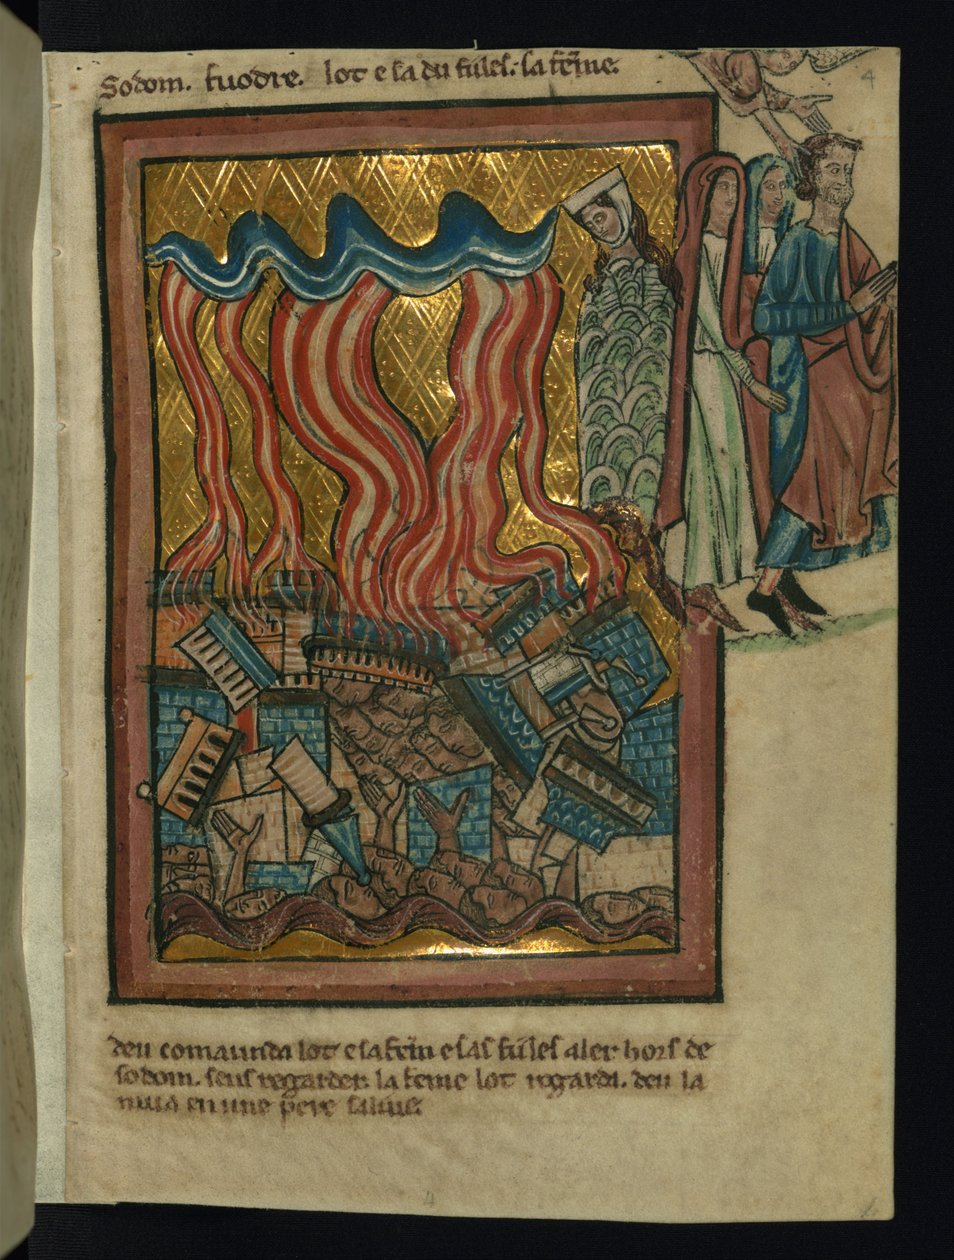 Sodom. fuodre. lot e sa du fules. sa feme. 4
deu comaunda lot e sa fem e sas fules aler hors de
sodom. sens regarder. la feme lot regarda. deu la
mua en une pere salus.